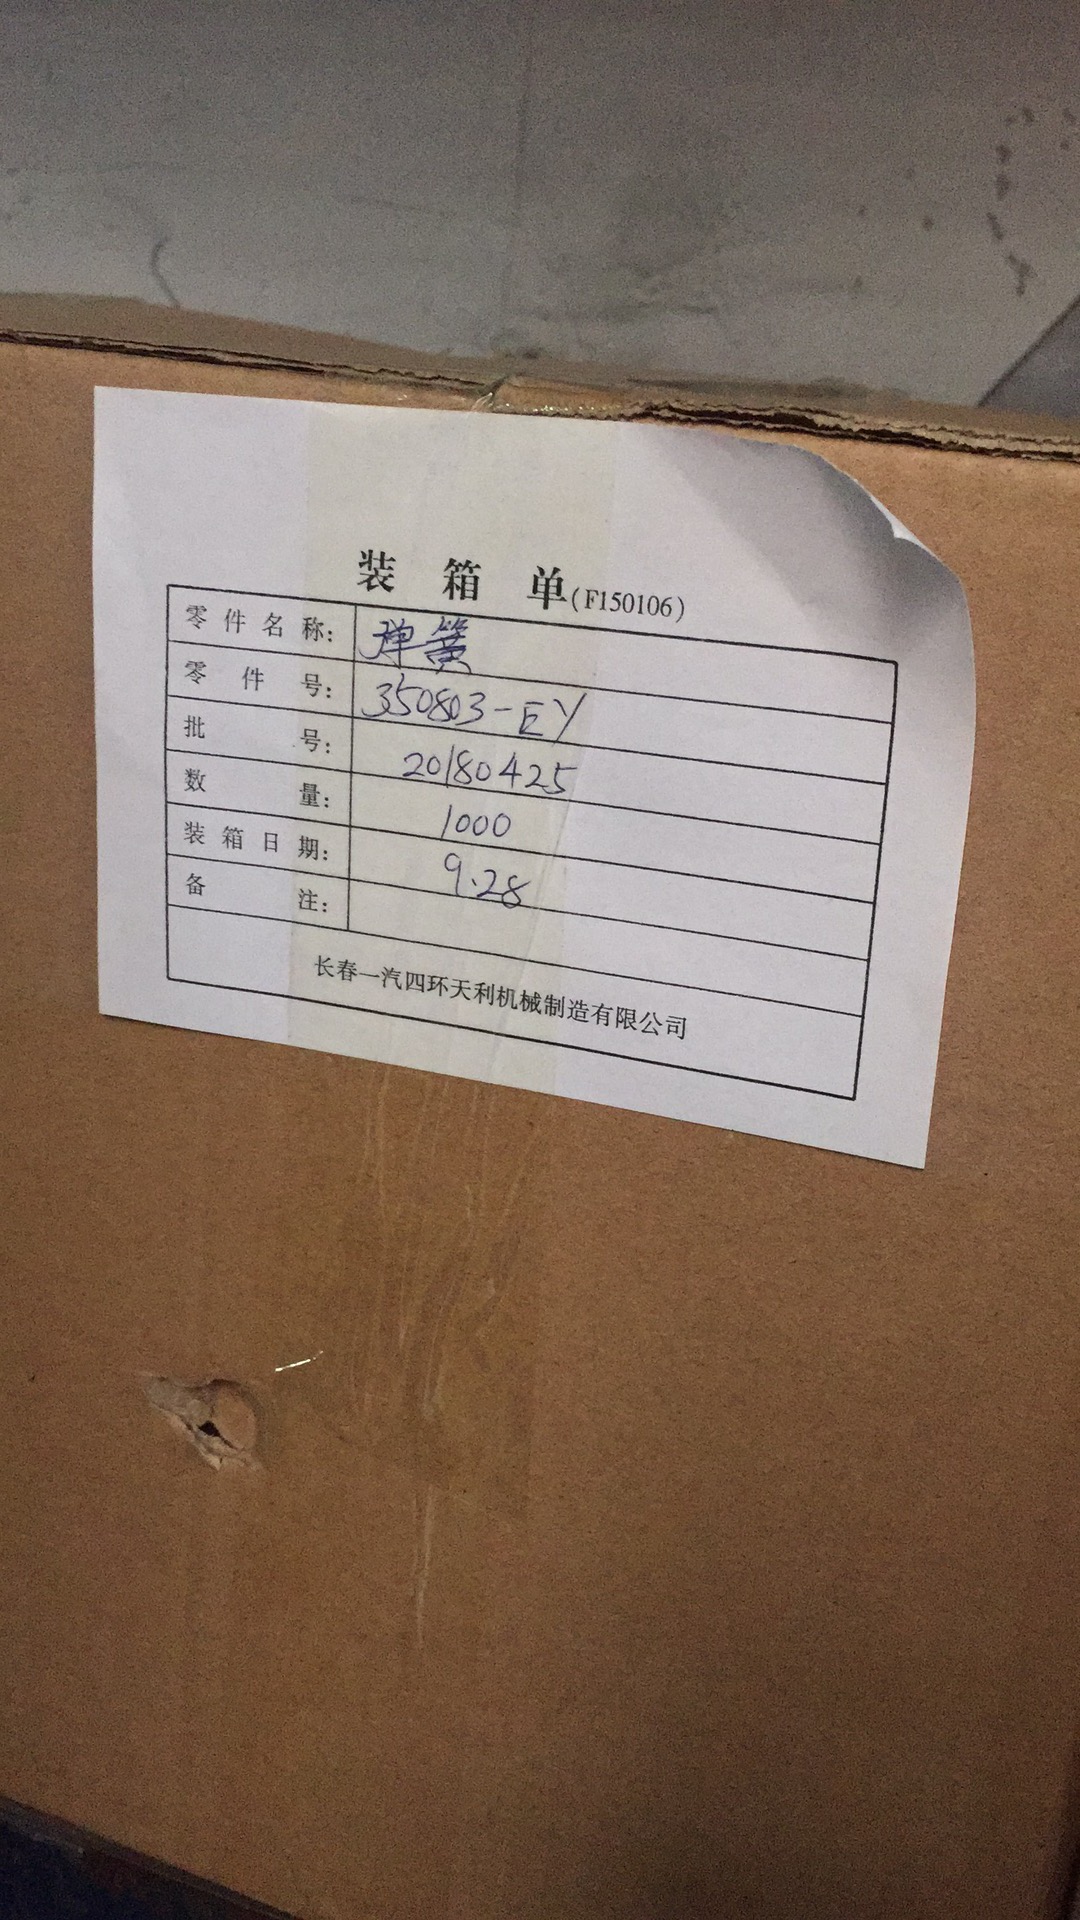 装箱单(F150106)
零件名称: 弹簧
零件号: 350803-EY
批号: 20180425
数量: 1000
装箱日期: 9.28
备注:
长春一汽四环天利机械制造有限公司